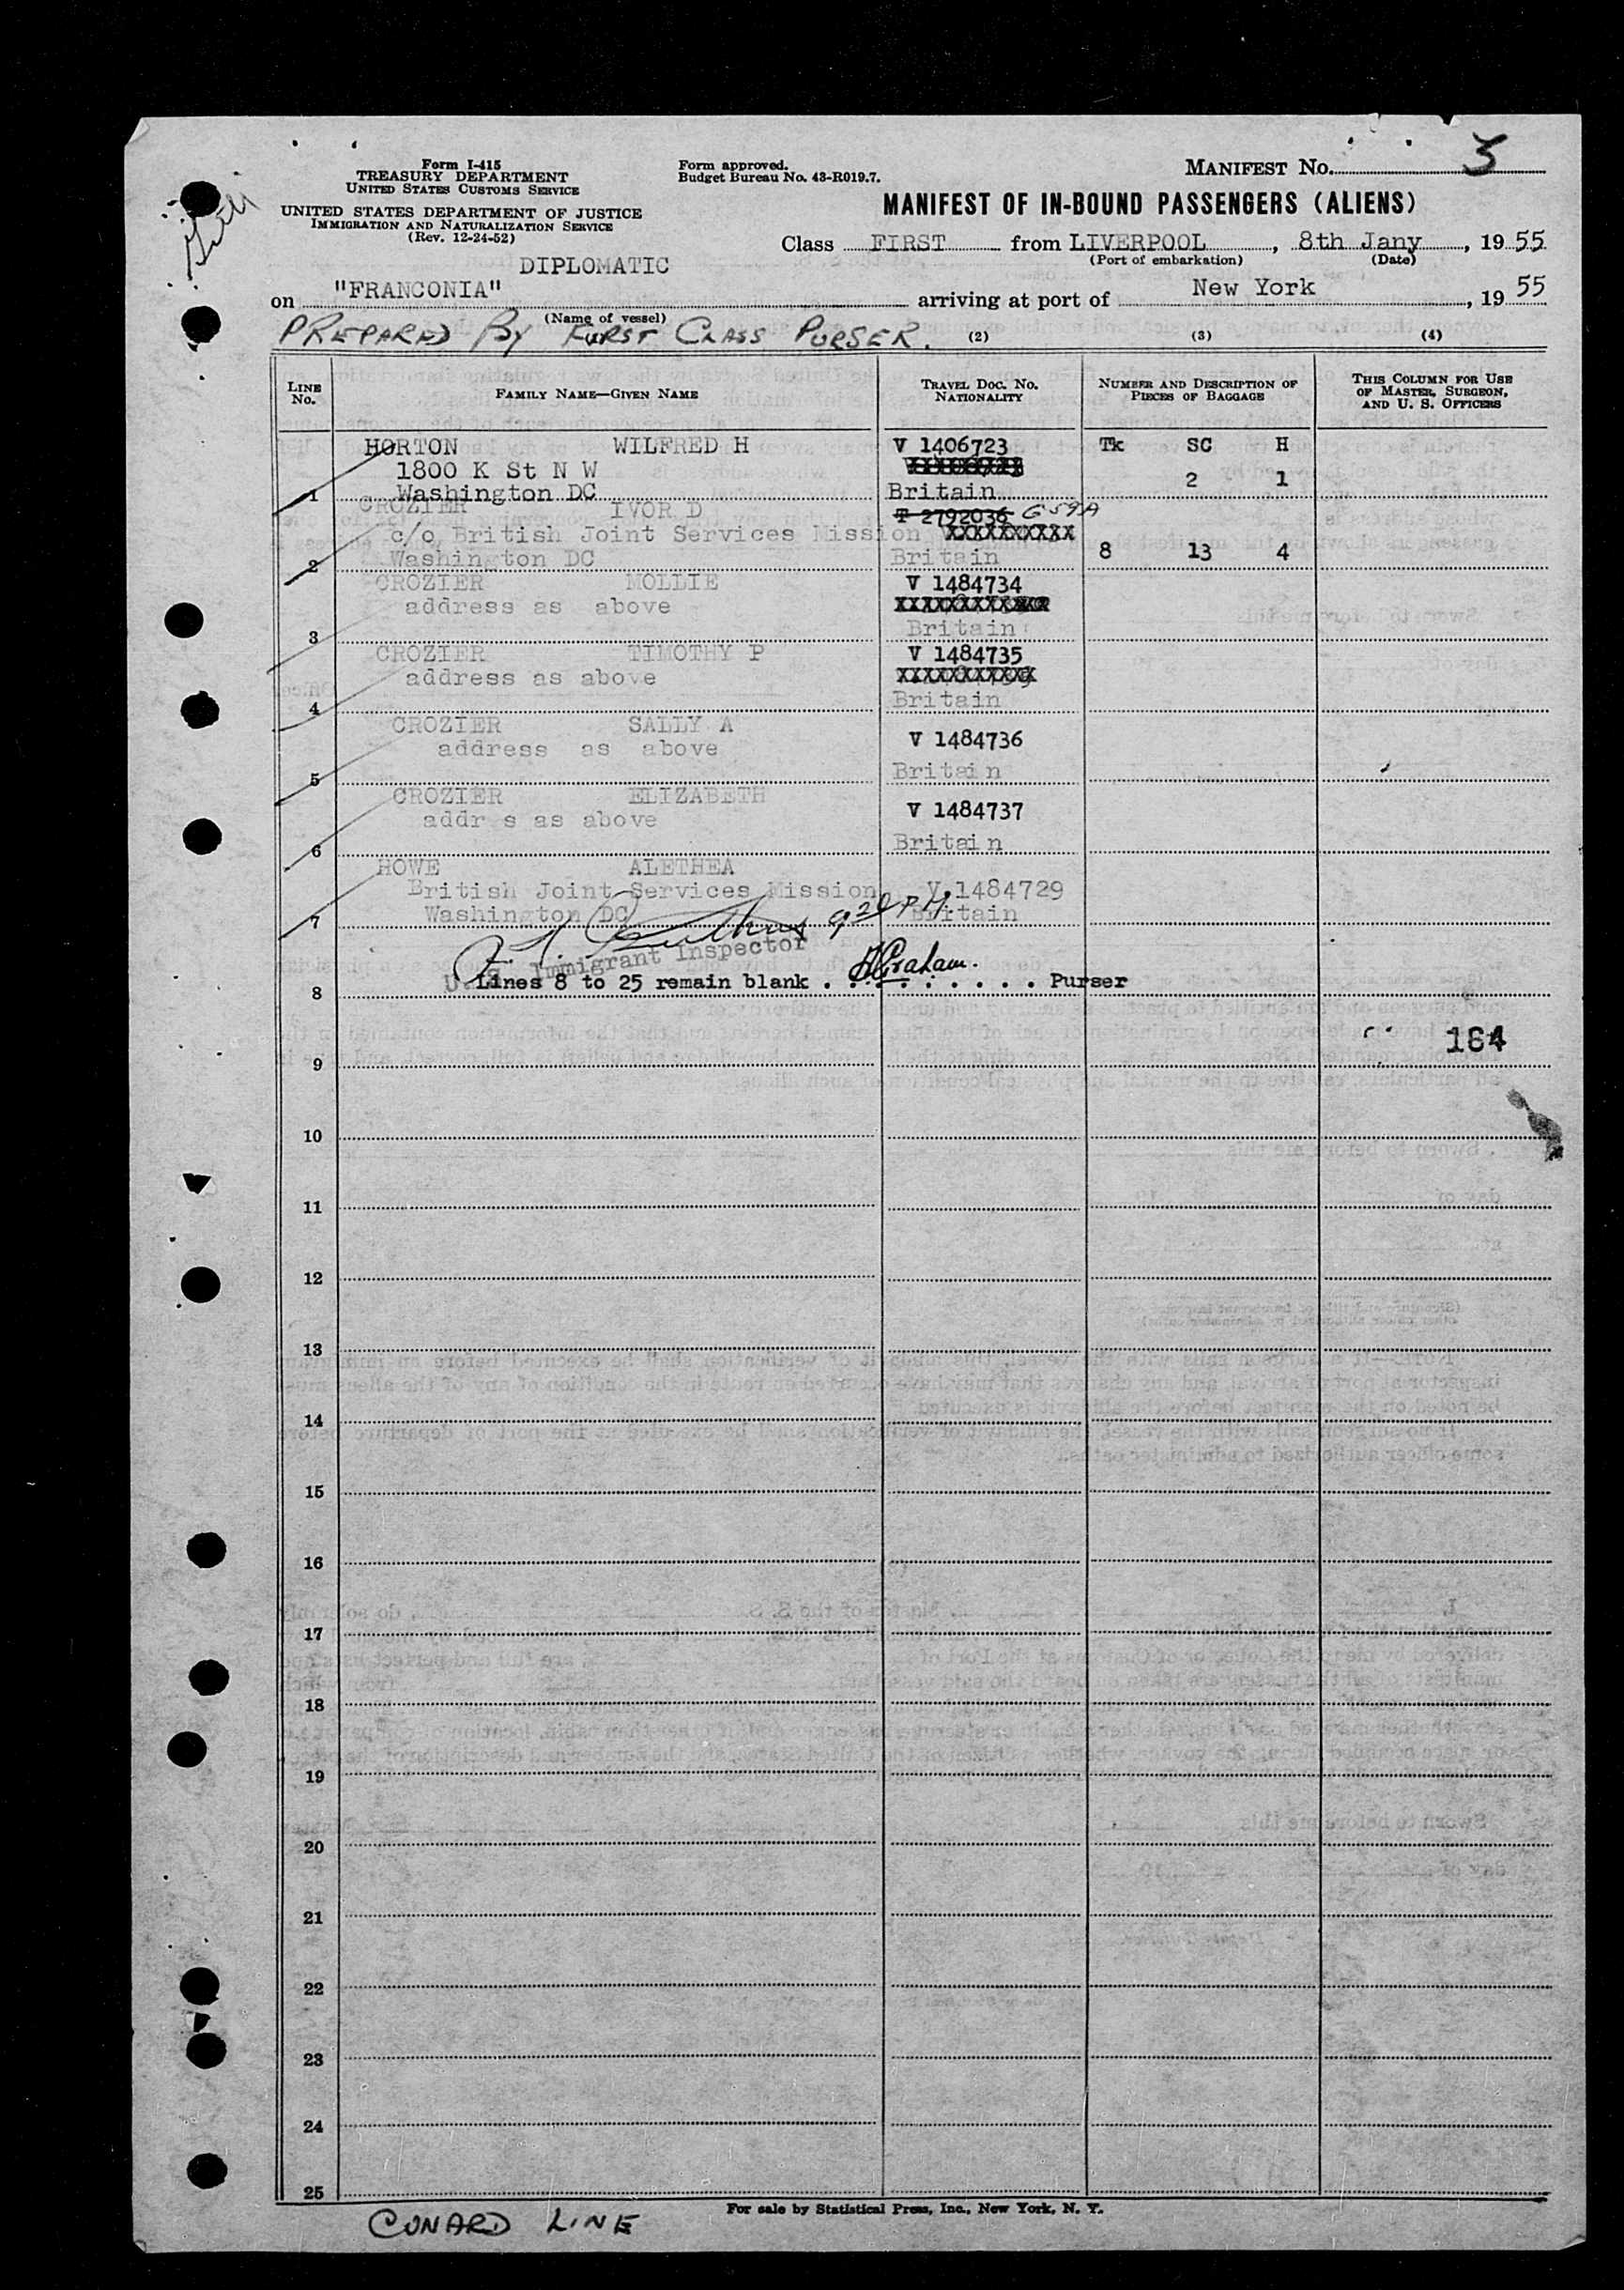 Form I-415
TREASURY DEPARTMENT
UNITED STATES CUSTOMS SERVICE
UNITED STATES DEPARTMENT OF JUSTICE
IMMIGRATION AND NATURALIZATION SERVICE
(Rev. 12-24-52)
Form approved.
Budget Bureau No. 43-R019.7.
MANIFEST No. 3
MANIFEST OF IN-BOUND PASSENGERS (ALIENS)
Class FIRST from LIVERPOOL, 8th Jany, 1955
(Port of embarkation) (Date)
DIPLOMATIC
on "FRANCONIA" arriving at port of New York, 1955
(Name of vessel)
PREPARED BY FIRST CLASS PURSER. (2) (3) (4)
LINE No. FAMILY NAME—GIVEN NAME TRAVEL DOC. NO. NATIONALITY NUMBER AND DESCRIPTION OF PIECES OF BAGGAGE THIS COLUMN FOR USE OF MASTER, SURGEON, AND U. S. OFFICERS
HORTON WILFRED H V 1406723 Tk SC H
1800 K St N W XXXXXXXXX 2 1
1 Washington DC Britain
CROZIER IVOR D T 2792036 G59A
c/o British Joint Services Mission XXXXXXXXXX
2 Washington DC Britain 8 13 4
CROZIER MOLLIE V 1484734
address as above XXXXXXXXXXXX
3 Britain
CROZIER TIMOTHY P V 1484735
address as above XXXXXXXXXXX
4 Britain
CROZIER SALLY A V 1484736
address as above
5 Britain
CROZIER ELIZABETH V 1484737
addr s as above
6 Britain
HOWE ALETHEA
British Joint Services Mission V 1484729
7 Washington DC Britain
9 20 PM
U.S. Immigrant Inspector
8 Lines 8 to 25 remain blank . HGraham. . . . . . Purser
164
9
10
11
12
13
14
15
16
17
18
19
20
21
22
23
24
25
For sale by Statistical Press, Inc., New York, N. Y.
CUNARD LINE